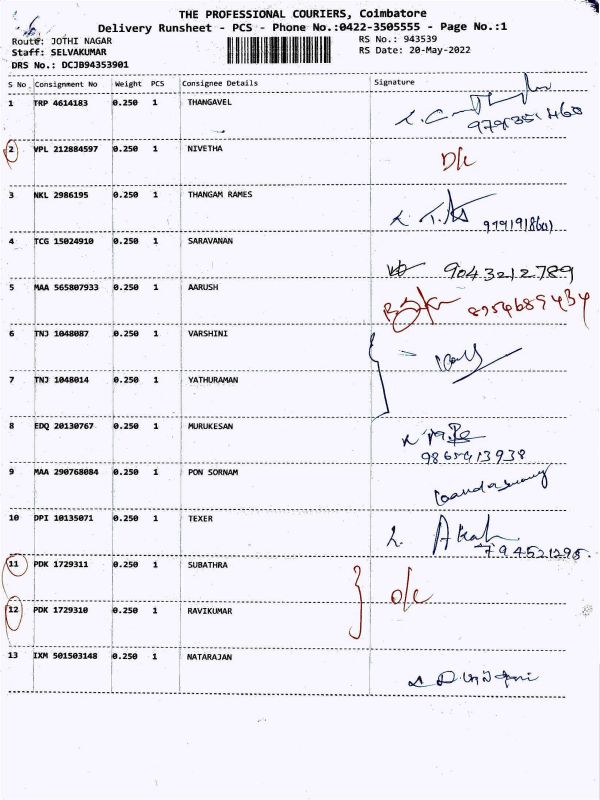 THE PROFESSIONAL COURIERS, Coimbatore
Delivery Runsheet - PCS - Phone No.:0422-3505555 - Page No.:1
Route: JOTHI NAGAR RS No.: 943539
Staff: SELVAKUMAR RS Date: 20-May-2022
DRS No.: DCJB94353901
S No Consignment No Weight PCS Consignee Details Signature
1 TRP 4614183 0.250 1 THANGAVEL
2 VPL 212884597 0.250 1 NIVETHA D/c
3 NKL 2986195 0.250 1 THANGAM RAMES
4 TCG 15024910 0.250 1 SARAVANAN 9043212789
5 MAA 565807933 0.250 1 AARUSH
6 TNJ 1048087 0.250 1 VARSHINI
7 TNJ 1048014 0.250 1 YATHURAMAN
8 EDQ 20130767 0.250 1 MURUKESAN
9 MAA 290768084 0.250 1 PON SORNAM
10 DPI 10135071 0.250 1 TEXER
11 PDK 1729311 0.250 1 SUBATHRA
12 PDK 1729310 0.250 1 RAVIKUMAR D/c
13 IXM 501503148 0.250 1 NATARAJAN